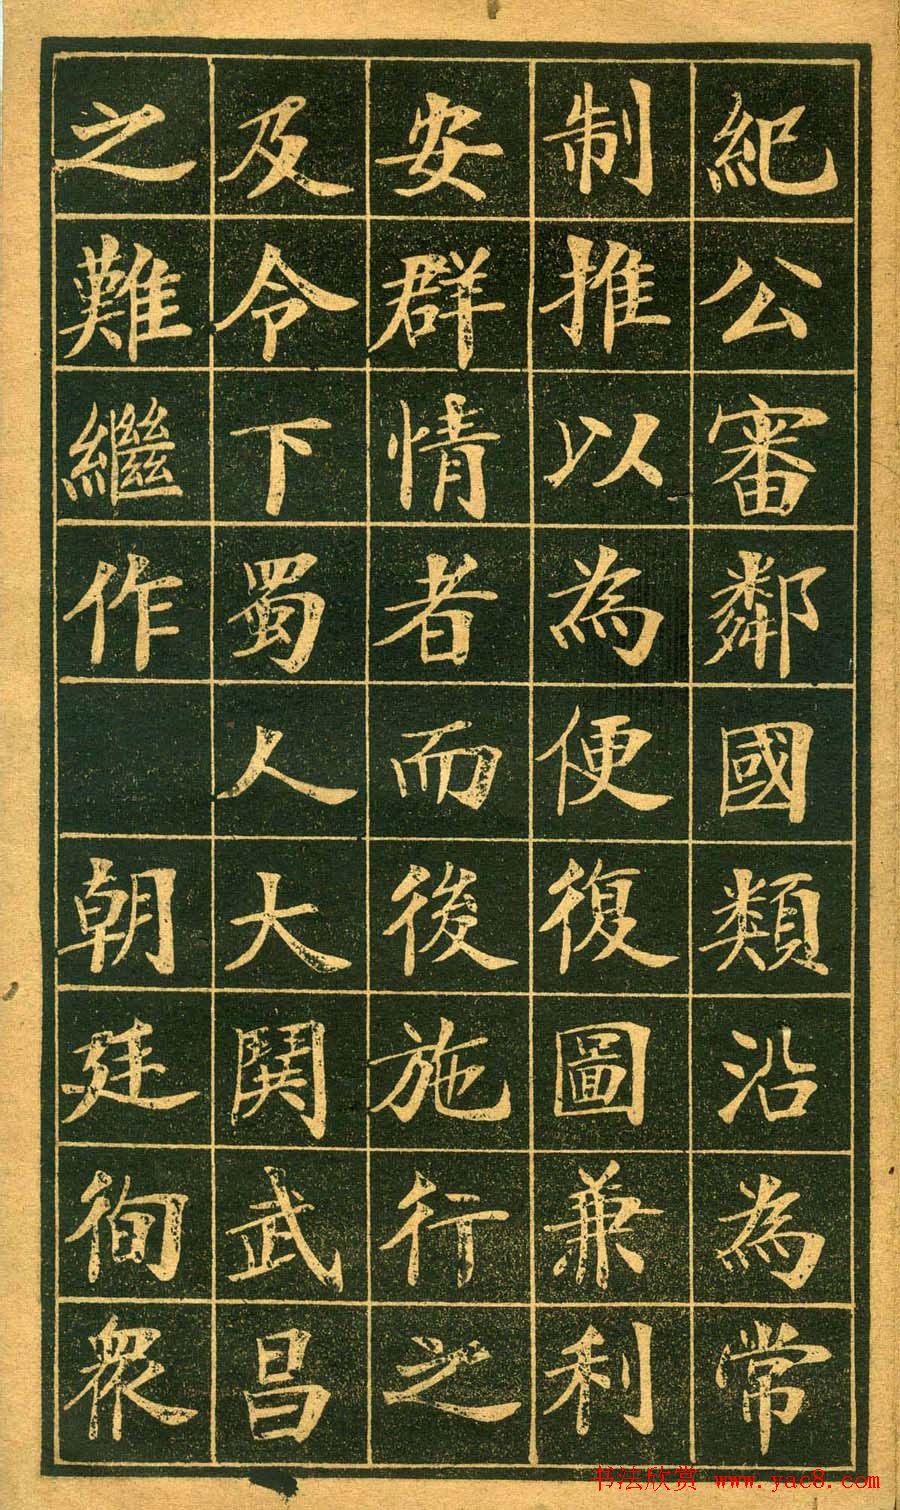 紀公審鄰國類沿為常
制推以為便復圖兼利
安群情者而後施行之
及令下蜀人大鬨武昌
之難繼作 朝廷徇衆
书法欣赏 www.yac8.com